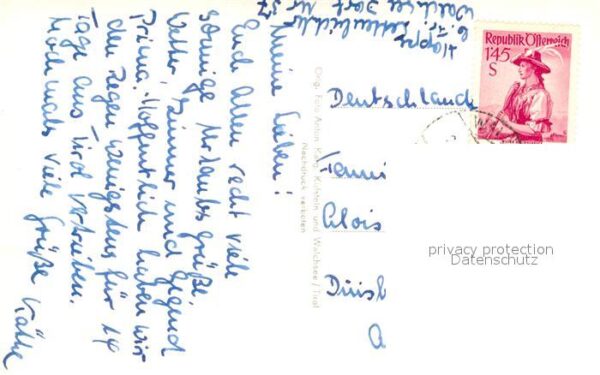 Meine Lieben!
Euch Allen recht viele
sonnige Urlaubsgrüße.
Wetter, Zimmer und Gegend
Prima. Hoffentlich haben wir
den Regen wenigstens für 14
Tage aus Tirol vertrieben.
Nochmals viele Grüße Käthe
Hoppe
Walchsee Dorf Nr 57
Orig. Foto Anton Karg, Kufstein und Walchsee/Tirol
Nachdruck verboten
REPUBLIK ÖSTERREICH
1'45
S
Deutschland
Fanni
Alois
Duisb
A
privacy protection
Datenschutz